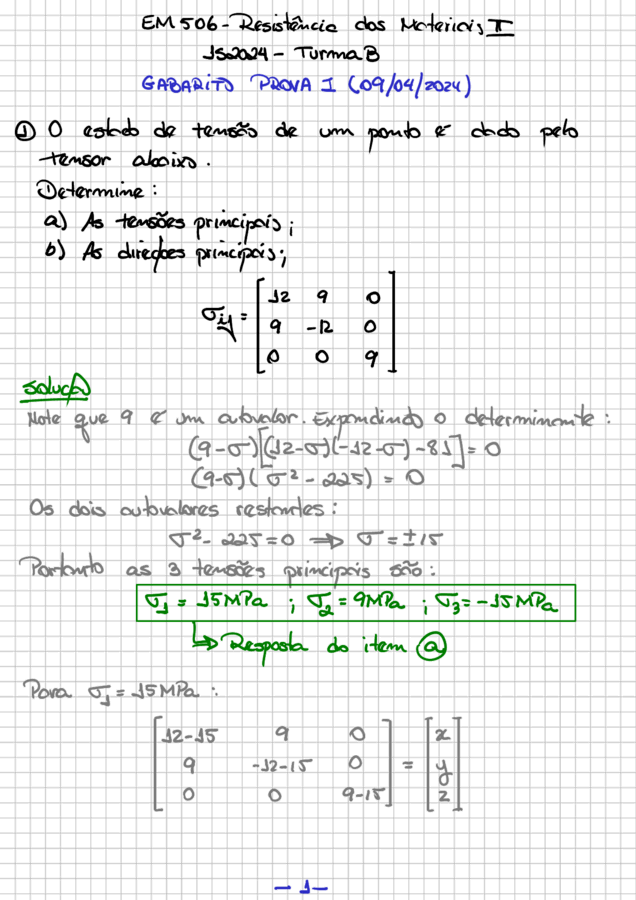 EM506 - Resistência dos Materiais II
1S2024 - Turma B
GABARITO PROVA I (09/04/2024)
① O estado de tensão de um ponto é dado pelo
tensor abaixo.
Determine:
a) As tensões principais;
b) As direções principais;
σij = [12 9 0
9 -12 0
0 0 9]
Solução
Note que 9 é um autovalor. Expandindo o determinante:
(9-σ)[(12-σ)(-12-σ)-81] = 0
(9-σ)(σ²-225) = 0
Os dois autovalores restantes:
σ²-225=0 ⇒ σ=±15
Portanto as 3 tensões principais são:
σ1 = 15MPa ; σ2 = 9MPa ; σ3 = -15MPa
↳ Resposta do item ⓐ
Para σ1 = 15MPa:
[12-15 9 0
9 -12-15 0
0 0 9-15] = [x
y
z]
- 1 -